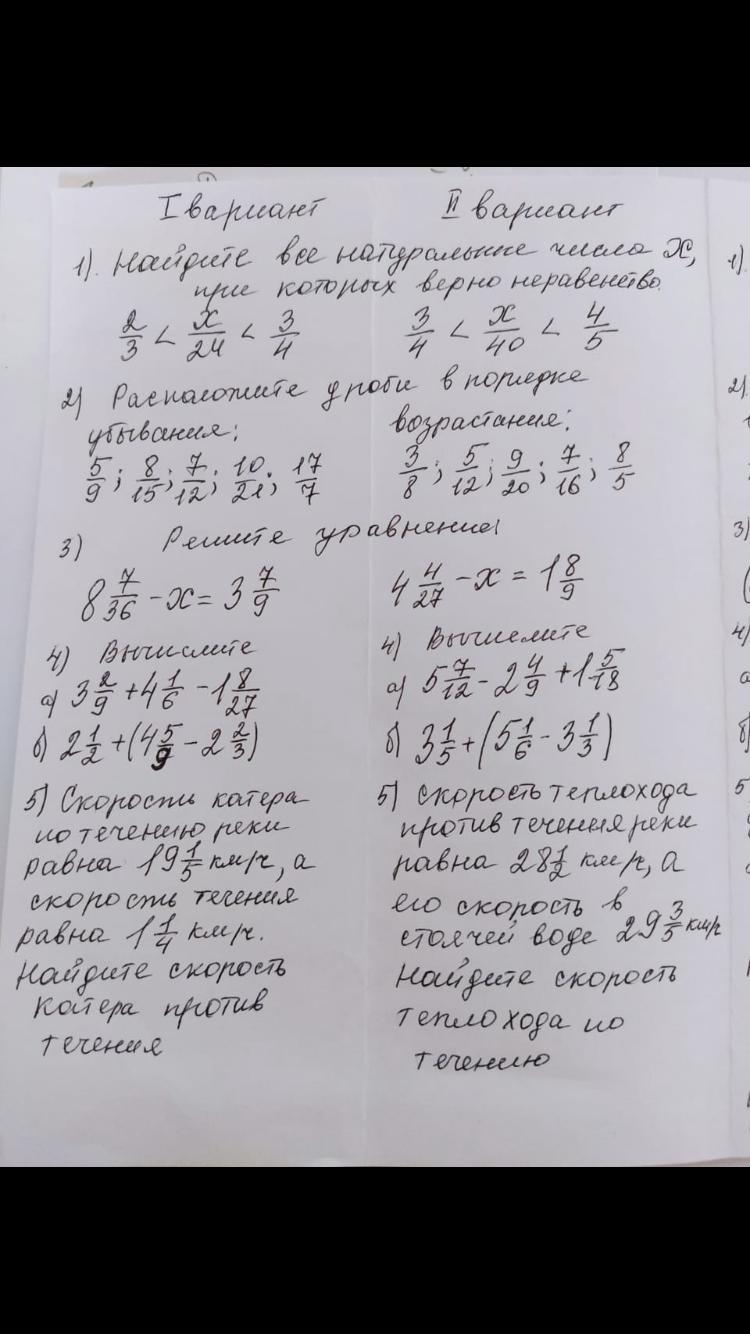 I вариант
1). Найдите все натуральные числа x,
при которых верно неравенство.
2/3 < x/24 < 3/4
2) Расположите дроби в порядке
убывания:
5/9; 8/15; 7/12; 10/21; 17/7
3) Решите уравнение:
8 7/36 - x = 3 7/9
4) Вычислите
а) 3 2/9 + 4 1/6 - 1 8/27
б) 2 1/2 + (4 5/9 - 2 2/3)
5) Скорость катера
по течению реки
равна 19 1/5 км/ч, а
скорость течения
равна 1 1/4 км/ч.
Найдите скорость
катера против
течения
II вариант
3/4 < x/40 < 4/5
возрастания:
3/8; 5/12; 9/20; 7/16; 8/5
4 4/27 - x = 1 8/9
4) Вычислите
а) 5 7/12 - 2 4/9 + 1 5/18
б) 3 1/5 + (5 1/6 - 3 1/3)
5) Скорость теплохода
против течения реки
равна 28 1/2 км/ч, а
его скорость в
стоячей воде 29 3/5 км/ч
Найдите скорость
теплохода по
течению
1)
2)
3)
4)
а
б)
5